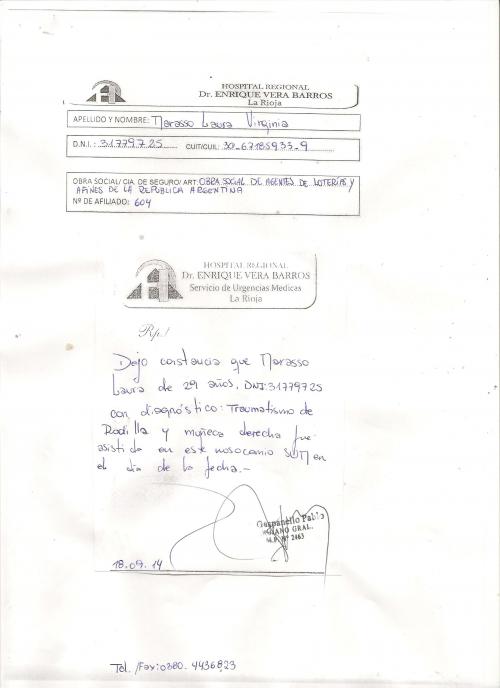 HOSPITAL REGIONAL
Dr. ENRIQUE VERA BARROS
La Rioja
APELLIDO Y NOMBRE: Narasso Laura Virginia
D.N.I.: 31779725 CUIT/CUIL: 30-67185933-9
OBRA SOCIAL/ CIA. DE SEGURO/ ART: OBRA SOCIAL DE AGENTES DE LOTERÍAS Y
AFINES DE LA REPUBLICA ARGENTINA
Nº DE AFILIADO: 604
HOSPITAL REGIONAL
Dr. ENRIQUE VERA BARROS
Servicio de Urgencias Medicas
La Rioja
Rp./
Dejo constancia que Narasso
Laura de 29 años, DNI:31779725
con diagnóstico: Traumatismo de
Rodilla y muñeca derecha fue
asistida en este nosocomio en
el dia de la fecha.-
Guspanello Pablo
GRAL.
M.P. Nº 2463
18.09.14
Tel./Fax:0380. 4436823